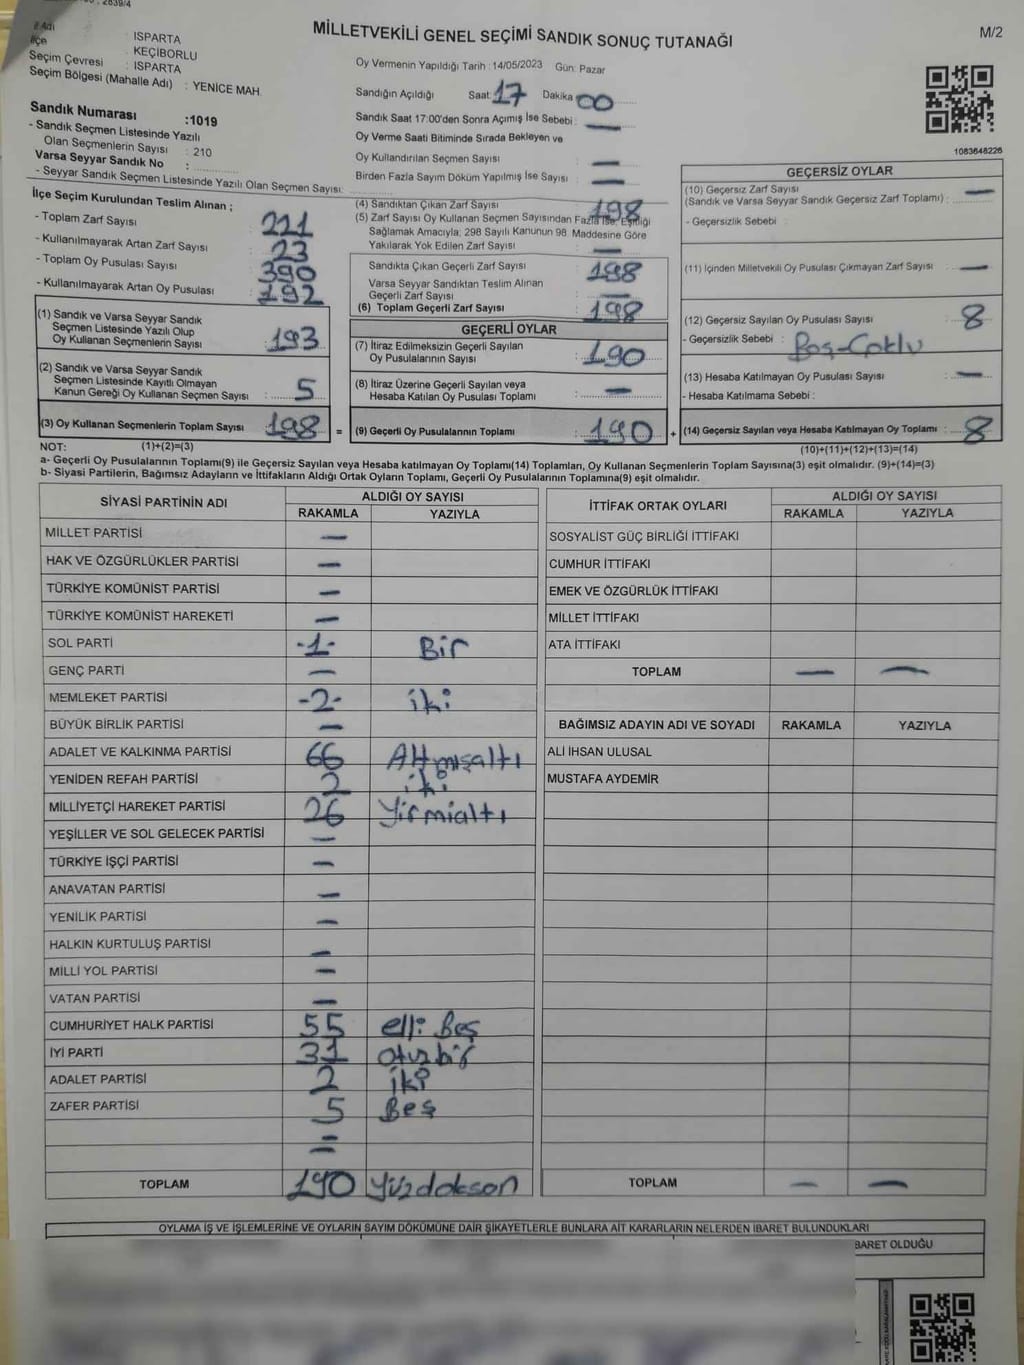 2839/4
MİLLETVEKİLİ GENEL SEÇİMİ SANDIK SONUÇ TUTANAĞI
M/2
İl Adı : ISPARTA
İlçe : KEÇİBORLU
Seçim Çevresi : ISPARTA
Seçim Bölgesi (Mahalle Adı) : YENİCE MAH.
Sandık Numarası :1019
- Sandık Seçmen Listesinde Yazılı
Olan Seçmenlerin Sayısı : 210
Varsa Seyyar Sandık No :
- Seyyar Sandık Seçmen Listesinde Yazılı Olan Seçmen Sayısı:
Oy Vermenin Yapıldığı Tarih : 14/05/2023 Gün: Pazar
Sandığın Açıldığı Saat: 17 Dakika 00
Sandık Saat 17:00'den Sonra Açımış İse Sebebi : —
Oy Verme Saati Bitiminde Sırada Bekleyen ve
Oy Kullandırılan Seçmen Sayısı —
Birden Fazla Sayım Döküm Yapılmış İse Sayısı : —
1083648226
İlçe Seçim Kurulundan Teslim Alınan ;
- Toplam Zarf Sayısı : 221
- Kullanılmayarak Artan Zarf Sayısı : 23
- Toplam Oy Pusulası Sayısı : 390
- Kullanılmayarak Artan Oy Pusulası : 192
(1) Sandık ve Varsa Seyyar Sandık
Seçmen Listesinde Yazılı Olup
Oy Kullanan Seçmenlerin Sayısı : 193
(2) Sandık ve Varsa Seyyar Sandık
Seçmen Listesinde Kayıtlı Olmayan
Kanun Gereği Oy Kullanan Seçmen Sayısı : 5
(3) Oy Kullanan Seçmenlerin Toplam Sayısı : 198
(4) Sandıktan Çıkan Zarf Sayısı : 198
(5) Zarf Sayısı Oy Kullanan Seçmen Sayısından Fazla İse, Eşitliği
Sağlamak Amacıyla; 298 Sayılı Kanunun 98. Maddesine Göre
Yakılarak Yok Edilen Zarf Sayısı : —
Sandıkta Çıkan Geçerli Zarf Sayısı : 198
Varsa Seyyar Sandıktan Teslim Alınan
Geçerli Zarf Sayısı : —
(6) Toplam Geçerli Zarf Sayısı : 198
GEÇERLİ OYLAR
(7) İtiraz Edilmeksizin Geçerli Sayılan
Oy Pusulalarının Sayısı : 190
(8) İtiraz Üzerine Geçerli Sayılan veya
Hesaba Katılan Oy Pusulası Toplamı : —
= (9) Geçerli Oy Pusulalarının Toplamı : 190
GEÇERSİZ OYLAR
(10) Geçersiz Zarf Sayısı —
(Sandık ve Varsa Seyyar Sandık Geçersiz Zarf Toplamı) :
- Geçersizlik Sebebi :
(11) İçinden Milletvekili Oy Pusulası Çıkmayan Zarf Sayısı : —
(12) Geçersiz Sayılan Oy Pusulası Sayısı : 8
- Geçersizlik Sebebi : Boş-Çoklu
(13) Hesaba Katılmayan Oy Pusulası Sayısı : —
- Hesaba Katılmama Sebebi :
+ (14) Geçersiz Sayılan veya Hesaba Katılmayan Oy Toplamı : 8
NOT: (1)+(2)=(3)
(10)+(11)+(12)+(13)=(14)
a- Geçerli Oy Pusulalarının Toplamı(9) ile Geçersiz Sayılan veya Hesaba katılmayan Oy Toplamı(14) Toplamları, Oy Kullanan Seçmenlerin Toplam Sayısına(3) eşit olmalıdır. (9)+(14)=(3)
b- Siyasi Partilerin, Bağımsız Adayların ve İttifakların Aldığı Ortak Oyların Toplamı, Geçerli Oy Pusulalarının Toplamına(9) eşit olmalıdır.
SİYASİ PARTİNİN ADI ALDIĞI OY SAYISI
RAKAMLA YAZIYLA
MİLLET PARTİSİ —
HAK VE ÖZGÜRLÜKLER PARTİSİ —
TÜRKİYE KOMÜNİST PARTİSİ —
TÜRKİYE KOMÜNİST HAREKETİ —
SOL PARTİ -1- Bir
GENÇ PARTİ —
MEMLEKET PARTİSİ -2- iki
BÜYÜK BİRLİK PARTİSİ —
ADALET VE KALKINMA PARTİSİ 66 Altmışaltı
YENİDEN REFAH PARTİSİ 2 iki
MİLLİYETÇİ HAREKET PARTİSİ 26 Yirmialtı
YEŞİLLER VE SOL GELECEK PARTİSİ —
TÜRKİYE İŞÇİ PARTİSİ —
ANAVATAN PARTİSİ —
YENİLİK PARTİSİ —
HALKIN KURTULUŞ PARTİSİ —
MİLLİ YOL PARTİSİ —
VATAN PARTİSİ —
CUMHURİYET HALK PARTİSİ 55 elli Beş
İYİ PARTİ 31 otuzbir
ADALET PARTİSİ 2 iki
ZAFER PARTİSİ 5 Beş
—
—
TOPLAM 190 Yüzdoksan
İTTİFAK ORTAK OYLARI ALDIĞI OY SAYISI
RAKAMLA YAZIYLA
SOSYALİST GÜÇ BİRLİĞİ İTTİFAKI
CUMHUR İTTİFAKI
EMEK VE ÖZGÜRLÜK İTTİFAKI
MİLLET İTTİFAKI
ATA İTTİFAKI
TOPLAM — —
BAĞIMSIZ ADAYIN ADI VE SOYADI RAKAMLA YAZIYLA
ALİ İHSAN ULUSAL
MUSTAFA AYDEMİR
TOPLAM — —
OYLAMA İŞ VE İŞLEMLERİNE VE OYLARIN SAYIM DÖKÜMÜNE DAİR ŞİKAYETLERLE BUNLARA AİT KARARLARIN NELERDEN İBARET BULUNDUKLARI
BARET OLDUĞU